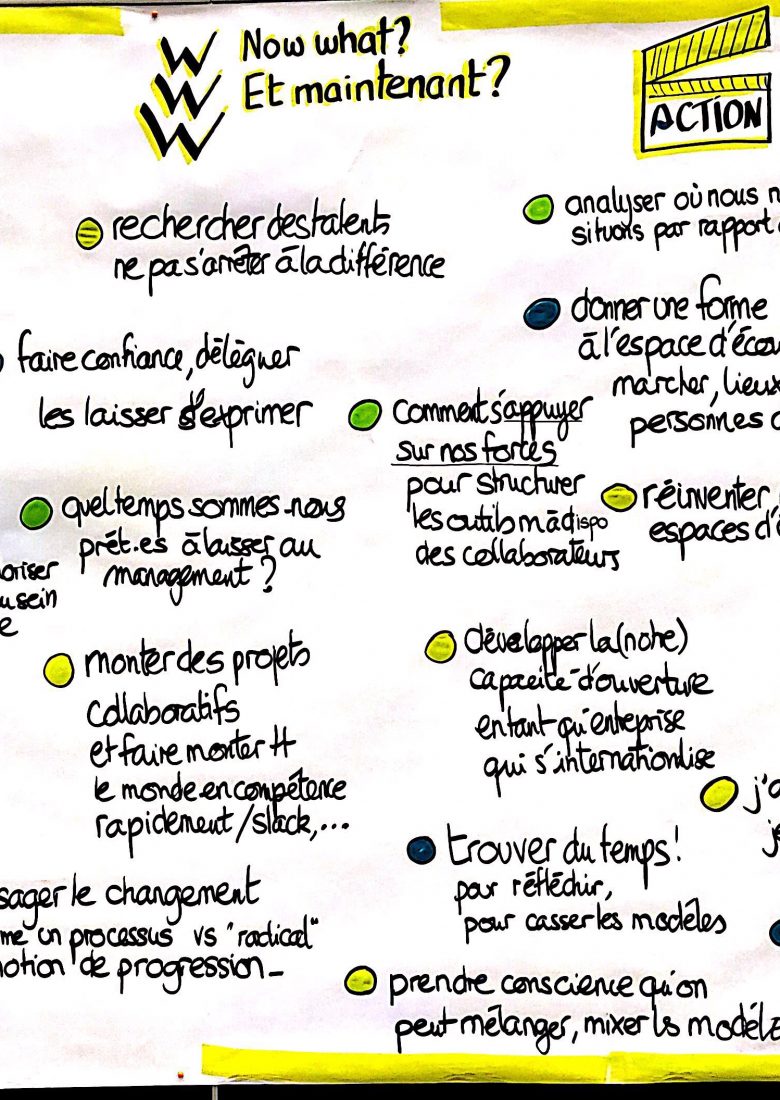 W
W
W
Now what?
Et maintenant?
ACTION
rechercher des talents
ne pas s'arrêter à la différence
faire confiance, déléguer
les laisser s'exprimer
quel temps sommes-nous
prêt.es à laisser au
management ?
oriser
u sein
e
monter des projets
collaboratifs
et faire monter tt
le monde en compétence
rapidement /slack,...
sager le changement
me un processus vs "radical"
notion de progression_
analyser où nous n
situons par rapport
donner une forme
à l'espace d'écou
marcher, lieux
personnes
comment s'appuyer
sur nos forces
pour structurer
les outils m à dispo
des collaborateurs
réinventer
espaces d'é
développer la (notre)
capacité d'ouverture
en tant qu'enteprise
qui s'internationalise
j'a
je
trouver du temps!
pour réfléchir,
pour casser les modèles
prendre conscience qu'on
peut mélanger, mixer ls modèle